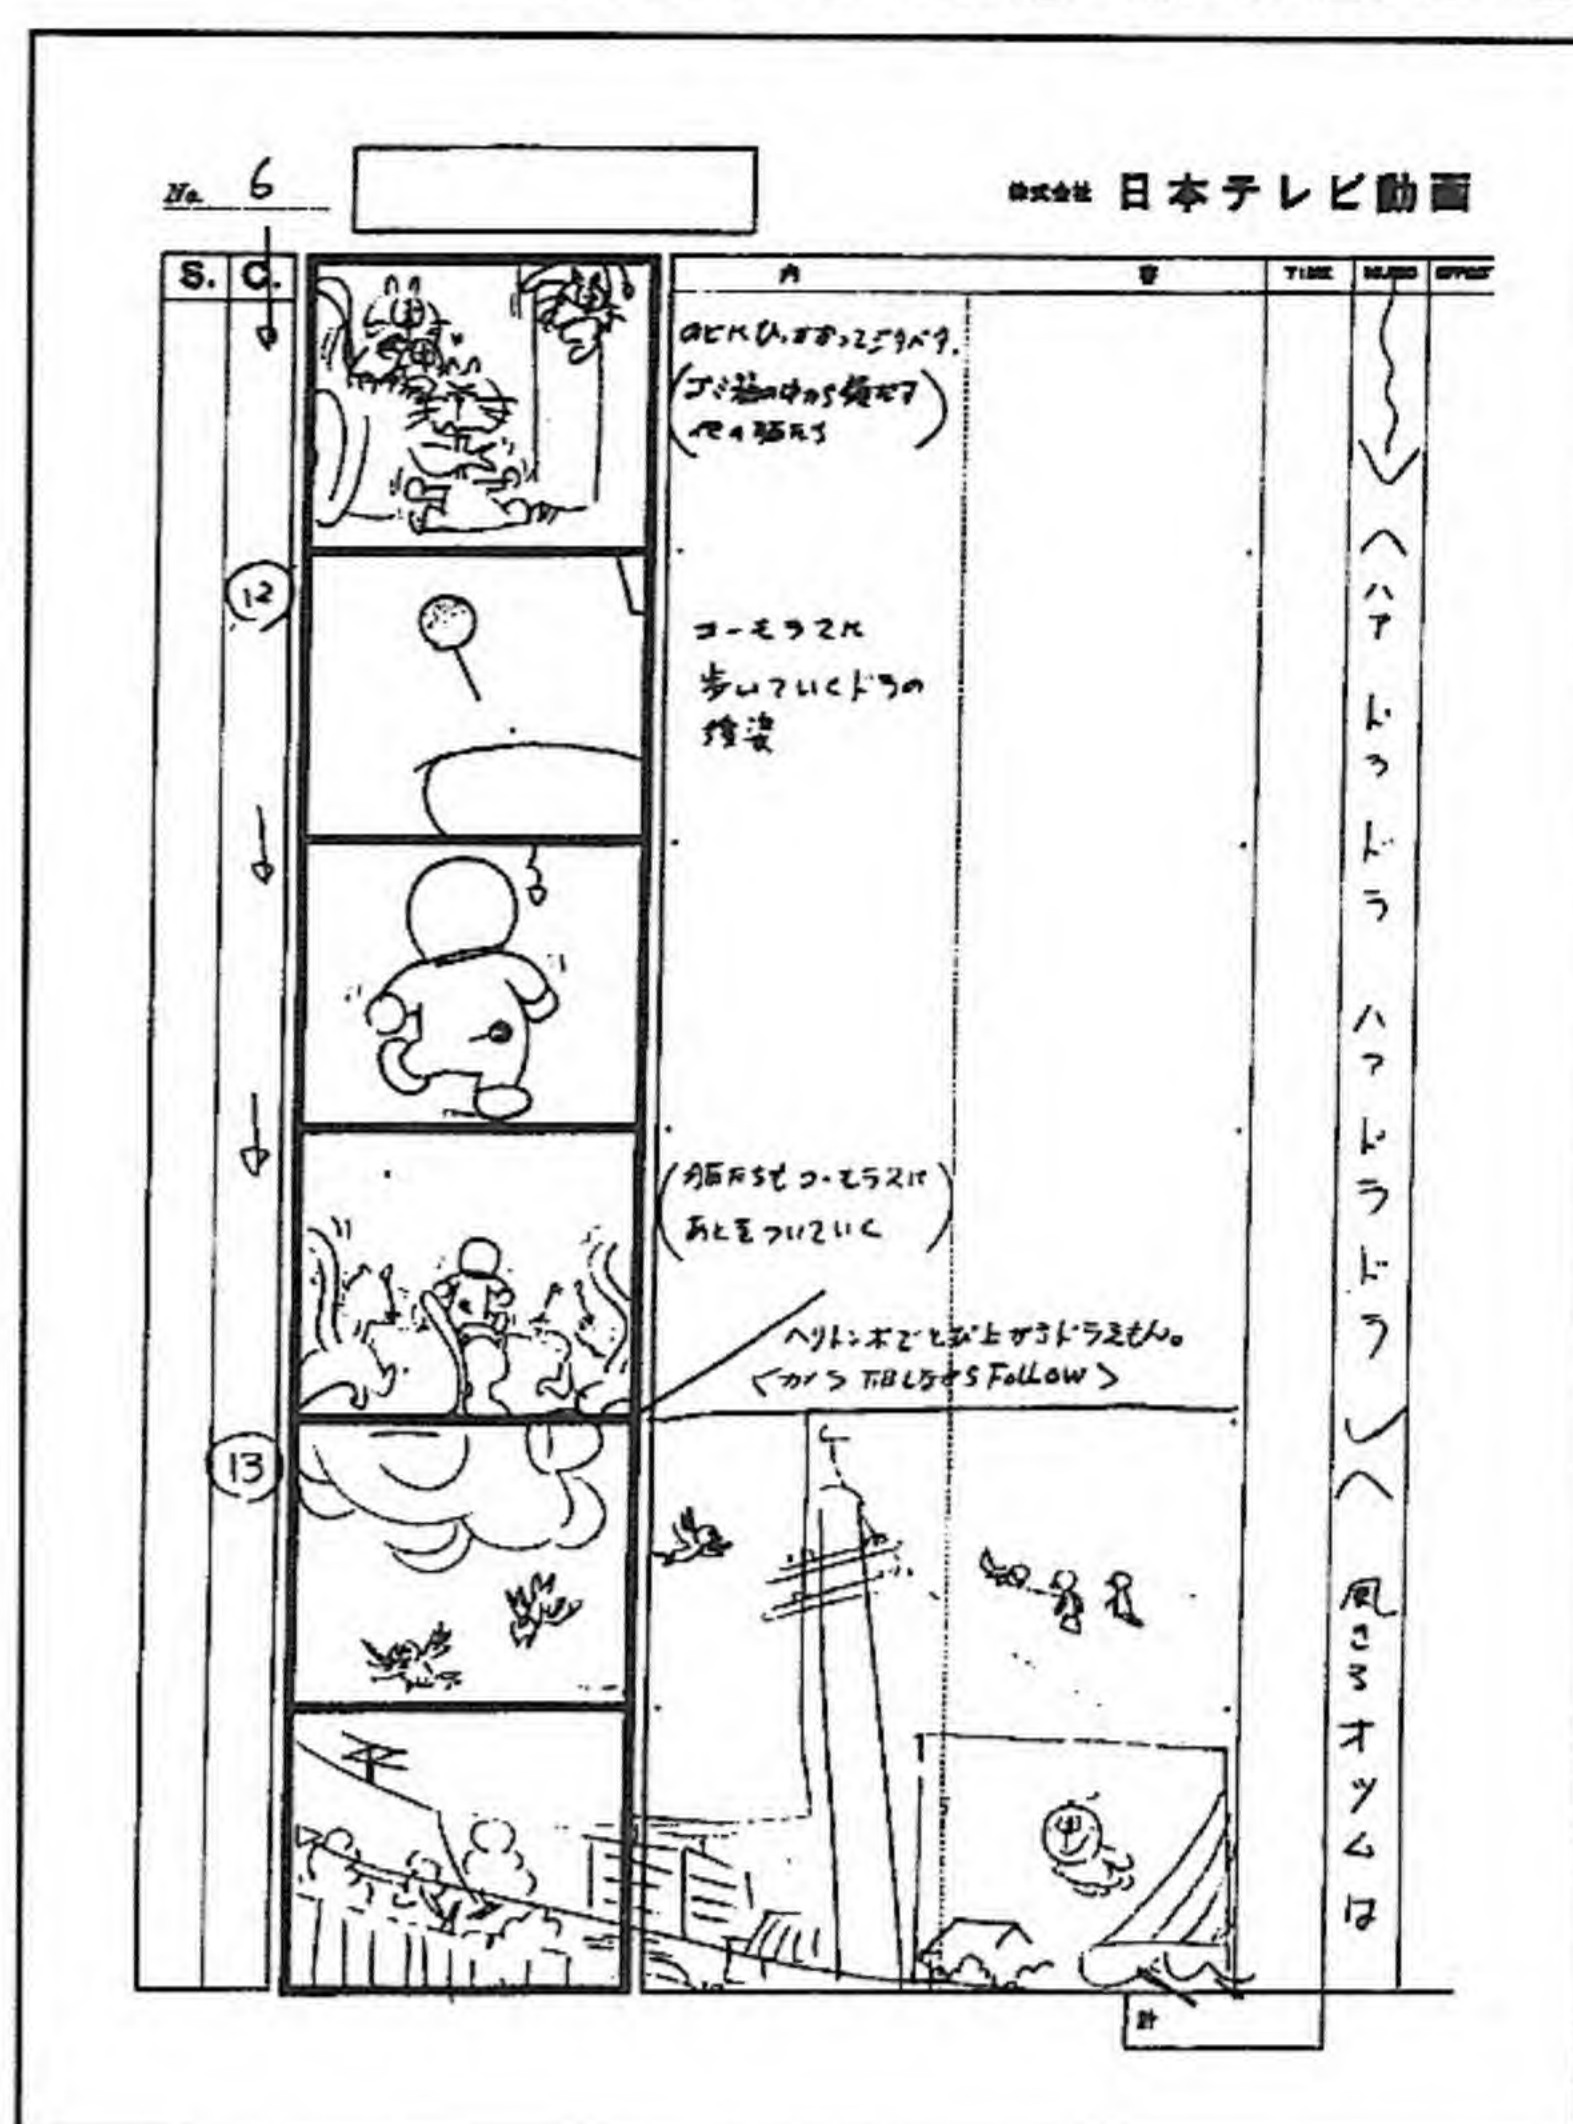 No. 6
株式会社 日本テレビ動画
S. C. 内 容 TIME
ひっかかってジタバタ。
(ゴミ箱の中から顔だす
他の猫たち)
12
コーモラスに
歩いていくドラの
後姿
(猫たちもコーモラスに
あとをついていく)
ヘリトンボでとび上がるドラえもん。
<カメラ Follow>
13
ハア ドラ ドラ ハア ドラ ドラ
風きるオツムは
計